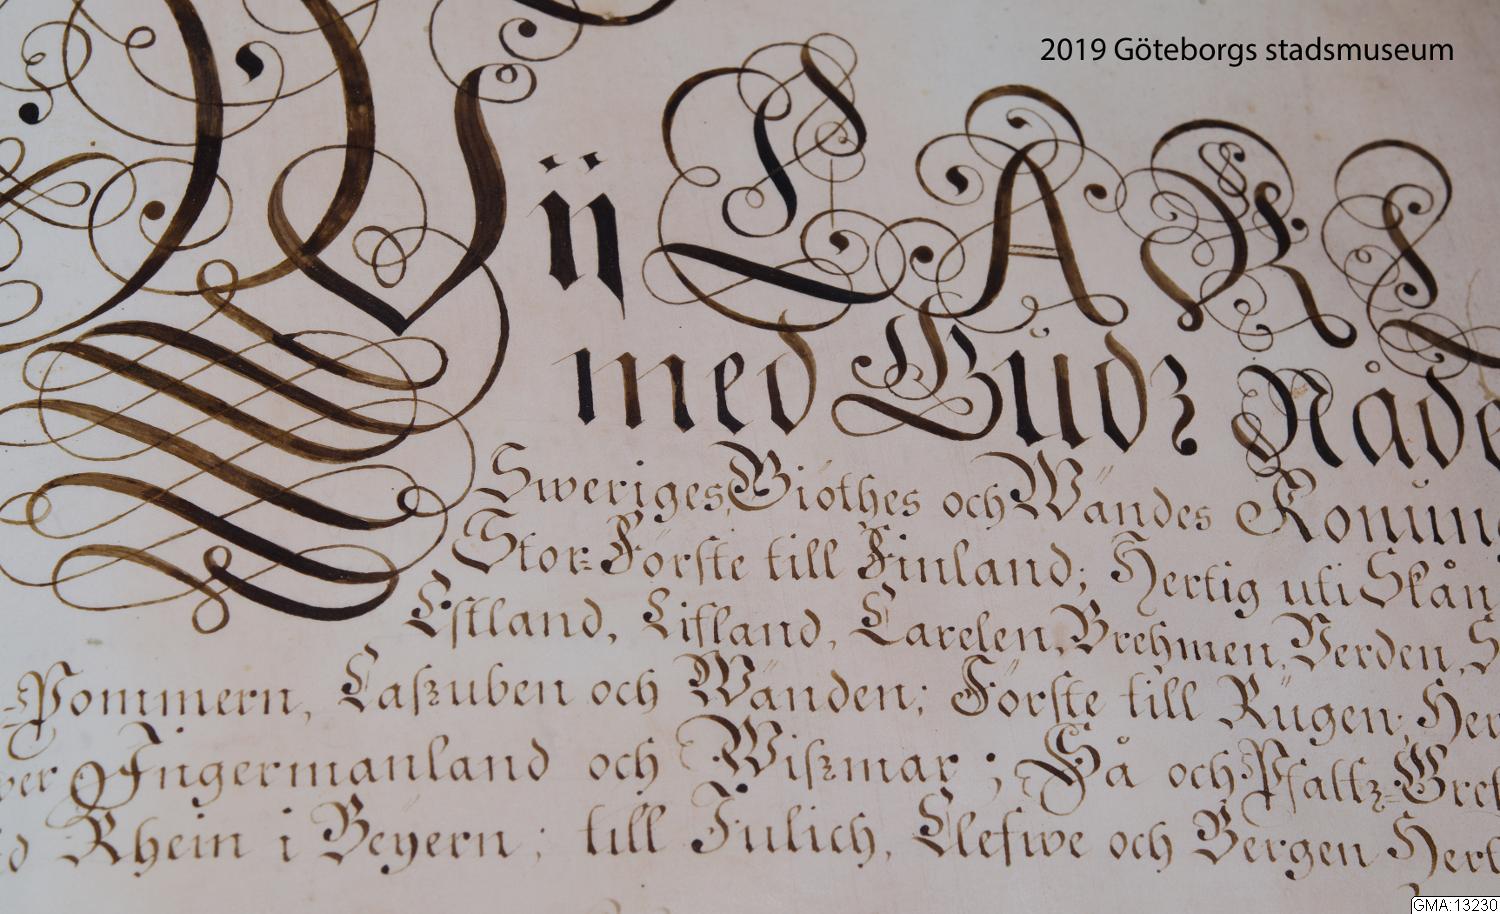 2019 Göteborgs stadsmuseum
Wij CARL
med Gudz Nåde
Sweriges, Giöthes och Wändes Konung
Stor-Förste till Finland; Hertig uti Skån
Estland, Lifland, Carelen, Brehmen, Verden, S
Pommern, Caszuben och Wänden; Förste till Rügen; Her
ver Ingermanland och Wiszmar; Så och Pfaltz-Gref
d Rhein i Beyern; till Jülich, Clefwe och Bergen Hert
GMA:13230